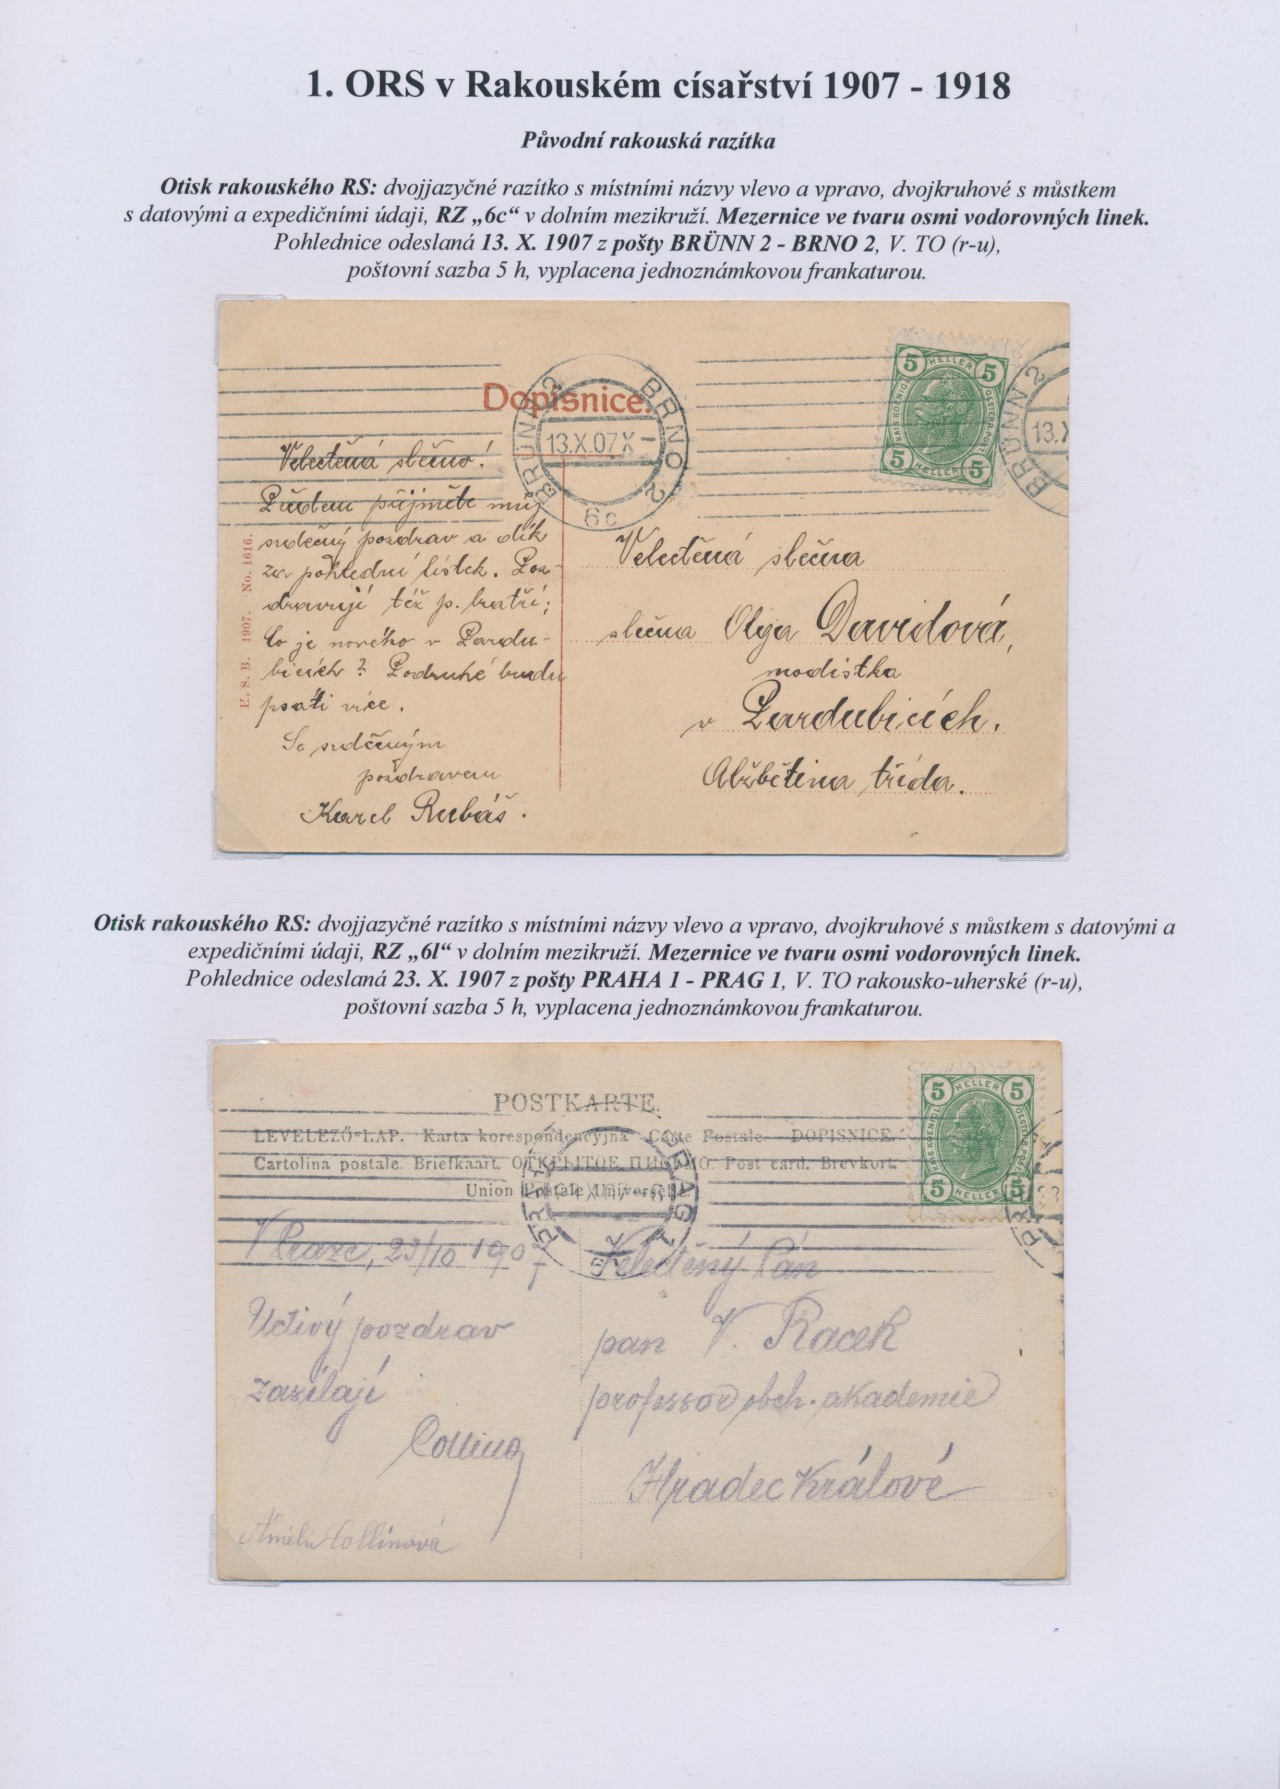 1. ORS v Rakouském císařství 1907 - 1918
Původní rakouská razítka
Otisk rakouského RS: dvojjazyčné razítko s místními názvy vlevo a vpravo, dvojkruhové s můstkem
s datovými a expedičními údaji, RZ „6c“ v dolním mezikruží. Mezernice ve tvaru osmi vodorovných linek.
Pohlednice odeslaná 13. X. 1907 z pošty BRÜNN 2 - BRNO 2, V. TO (r-u),
poštovní sazba 5 h, vyplacena jednoznámkovou frankaturou.
Dopisnice.
BRÜNN 2 BRNO 2
13.X.07 X -
6c
5 HELLER 5
5 HELLER 5
BRÜNN 2
13.X
E. S. B. 1907. No. 1616.
Velectěná slečno!
Předem přijměte můj
srdečný pozdrav a dík
za pohlední lístek. Poz-
dravují též p. bratři;
Co je nového v Pardu-
bicích? Podruhé budu
psáti více.
Se srdečným
pozdravem
Karel Rubáš.
Velectěná slečna
slečna Olga Davidová,
modistka
v Pardubicích.
Alžbětina třída.
Otisk rakouského RS: dvojjazyčné razítko s místními názvy vlevo a vpravo, dvojkruhové s můstkem s datovými a
expedičními údaji, RZ „6l“ v dolním mezikruží. Mezernice ve tvaru osmi vodorovných linek.
Pohlednice odeslaná 23. X. 1907 z pošty PRAHA 1 - PRAG 1, V. TO rakousko-uherské (r-u),
poštovní sazba 5 h, vyplacena jednoznámkovou frankaturou.
POSTKARTE.
LEVELEZŐ-LAP. Karta korespondencyjna Carte Postale DOPISNICE.
Cartolina postale. Briefkaart. ОТКРЫТОЕ ПИСЬМО. Post card. Brevkort.
Union Postale Universelle.
PRAG
5 HELLER 5
5 HELLER 5
V Praze, 23/10 1907
Uctivý pozdrav
zasílají
Collino
Amelie Collinová
Velectěný Pán
pan V. Racek
professor obch. akademie
Hradec Králové